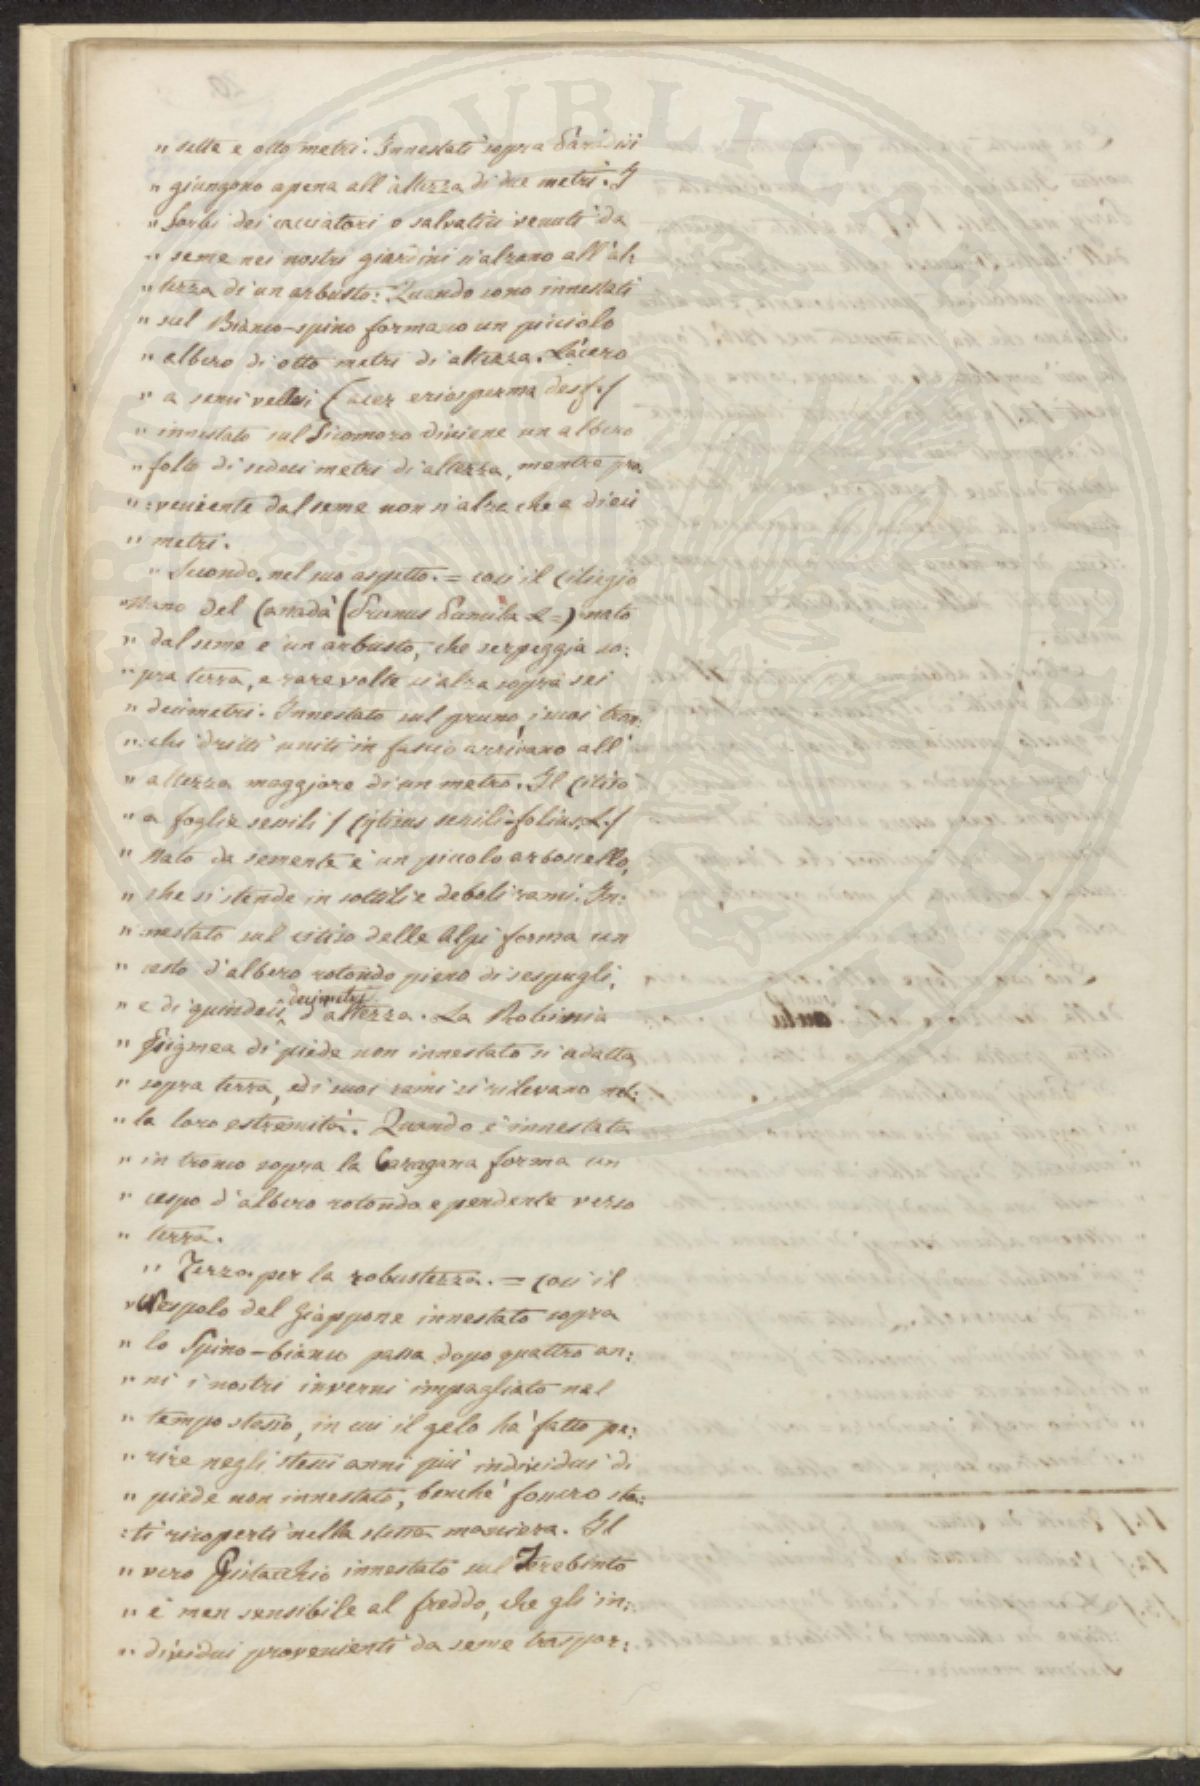 " sette e otto metri. Innestati sopra Paradisi
" giungono apena all'altezza di due metri. I
" Sorbi dei cacciatori o salvatici venuti da
" seme nei nostri giardini s'alzano all'al:
" tezza di un arbusto: Quando sono innestati
" sul Bianco-spino formano un picciolo
" albero di otto metri di altezza. L'acero
" a semi vellosi (acer eriosperma desf./
" innestato sul Sicomoro diviene un albero
" folto di sedici metri di altezza, mentre pro:
" :veniente dal seme non s'alza che a dieci
" metri.
" Secondo, nel suo aspetto. = così il Ciliegio
" nano del Canadà (Prunus Pumila L=) nato
" dal seme è un arbusto, che serpeggia so:
" pra terra, e rare volte si alza sopra sei
" decimetri. Innestato sul pruno, i suoi tron:
" :chi dritti uniti in fascio arrivano all'
" altezza maggiore di un metro. Il Citiso
" a foglie sessili / Cytisus sessili-folius. L./
" Nato da semente è un piccolo arboscello,
" che si stende in sottili e deboli rami. In:
" :nestato sul citiso delle Alpi forma un
" cesto d'albero rotondo pieno di cespugli,
" e di quindeci decimetri d'altezza. La Robinia
" Pigmea di piede non innestato si adatta
" sopra terra, ed i suoi rami si rilevano nel:
" la loro estremità. Quando è innestata
" in tronco sopra la Caragana forma un
" cespo d'albero rotondo e pendente verso
" terra.
" Terzo. per la robustezza. = così il
" Nespolo del Giappone innestato sopra
" lo Spino-bianco passa dopo quattro an:
" ni i nostri inverni impagliato nel
" tempo stesso, in cui il gelo hà fatto pe:
" rire negli stessi anni più individui di
" piede non innestato, benchè fossero sta:
:ti ricoperti nella stessa maniera. Il
" vero Pistacchio innestato sul Terebinto
" è men sensibile al freddo, che gli in:
" dividui provenienti da seme traspor: